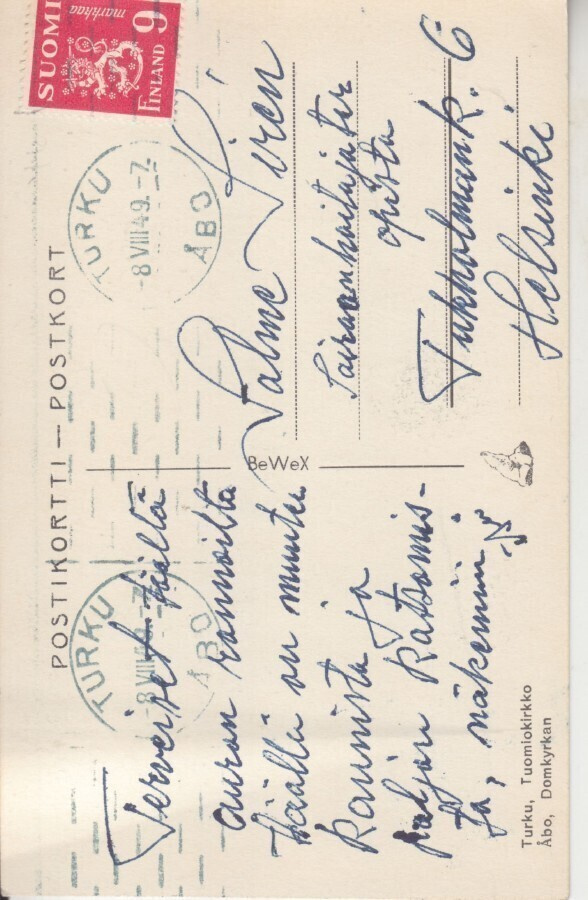 POSTIKORTTI — POSTKORT
SUOMI
markkaa
9
FINLAND
TURKU
-8 VIII 49.-7.
ÅBO
TURKU
-8 VIII 49.-7.
ÅBO
Terveiset täältä
auran rannoilta
täällä on muuten
kaunista ja
paljon katsomis-
ta, näkemiin!
BeWeX
Salme Siren
Sairaanhoitajatar
opisto
Tukholmank. 6
Helsinki
Turku, Tuomiokirkko
Åbo, Domkyrkan